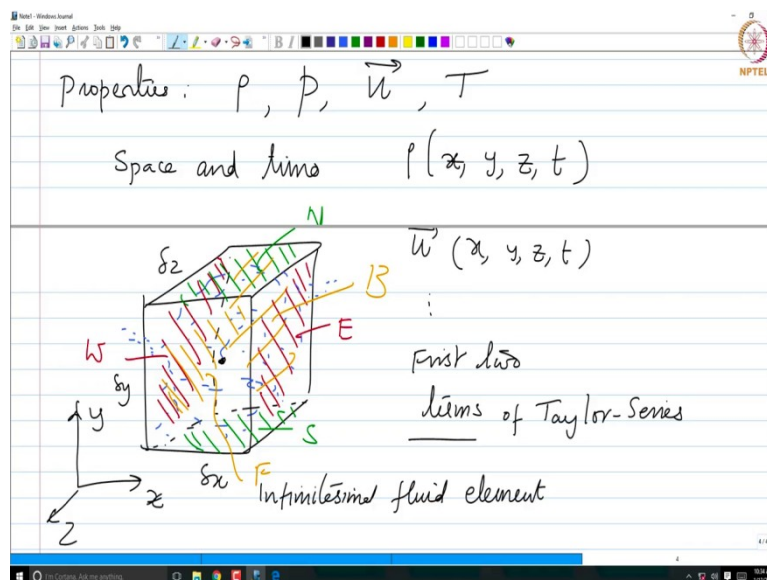 Note1 - Windows Journal
File Edit View Insert Actions Tools Help
NPTEL
Properties: ρ, p, u⃗, T
Space and time ρ(x, y, z, t)
N
δz
u⃗ (x, y, z, t)
B
⋮
W
E
First two
δy
terms of Taylor-Series
y
S
δx
F
x
Infinitesimal fluid element
z
4/4
4
I'm Cortana. Ask me anything.